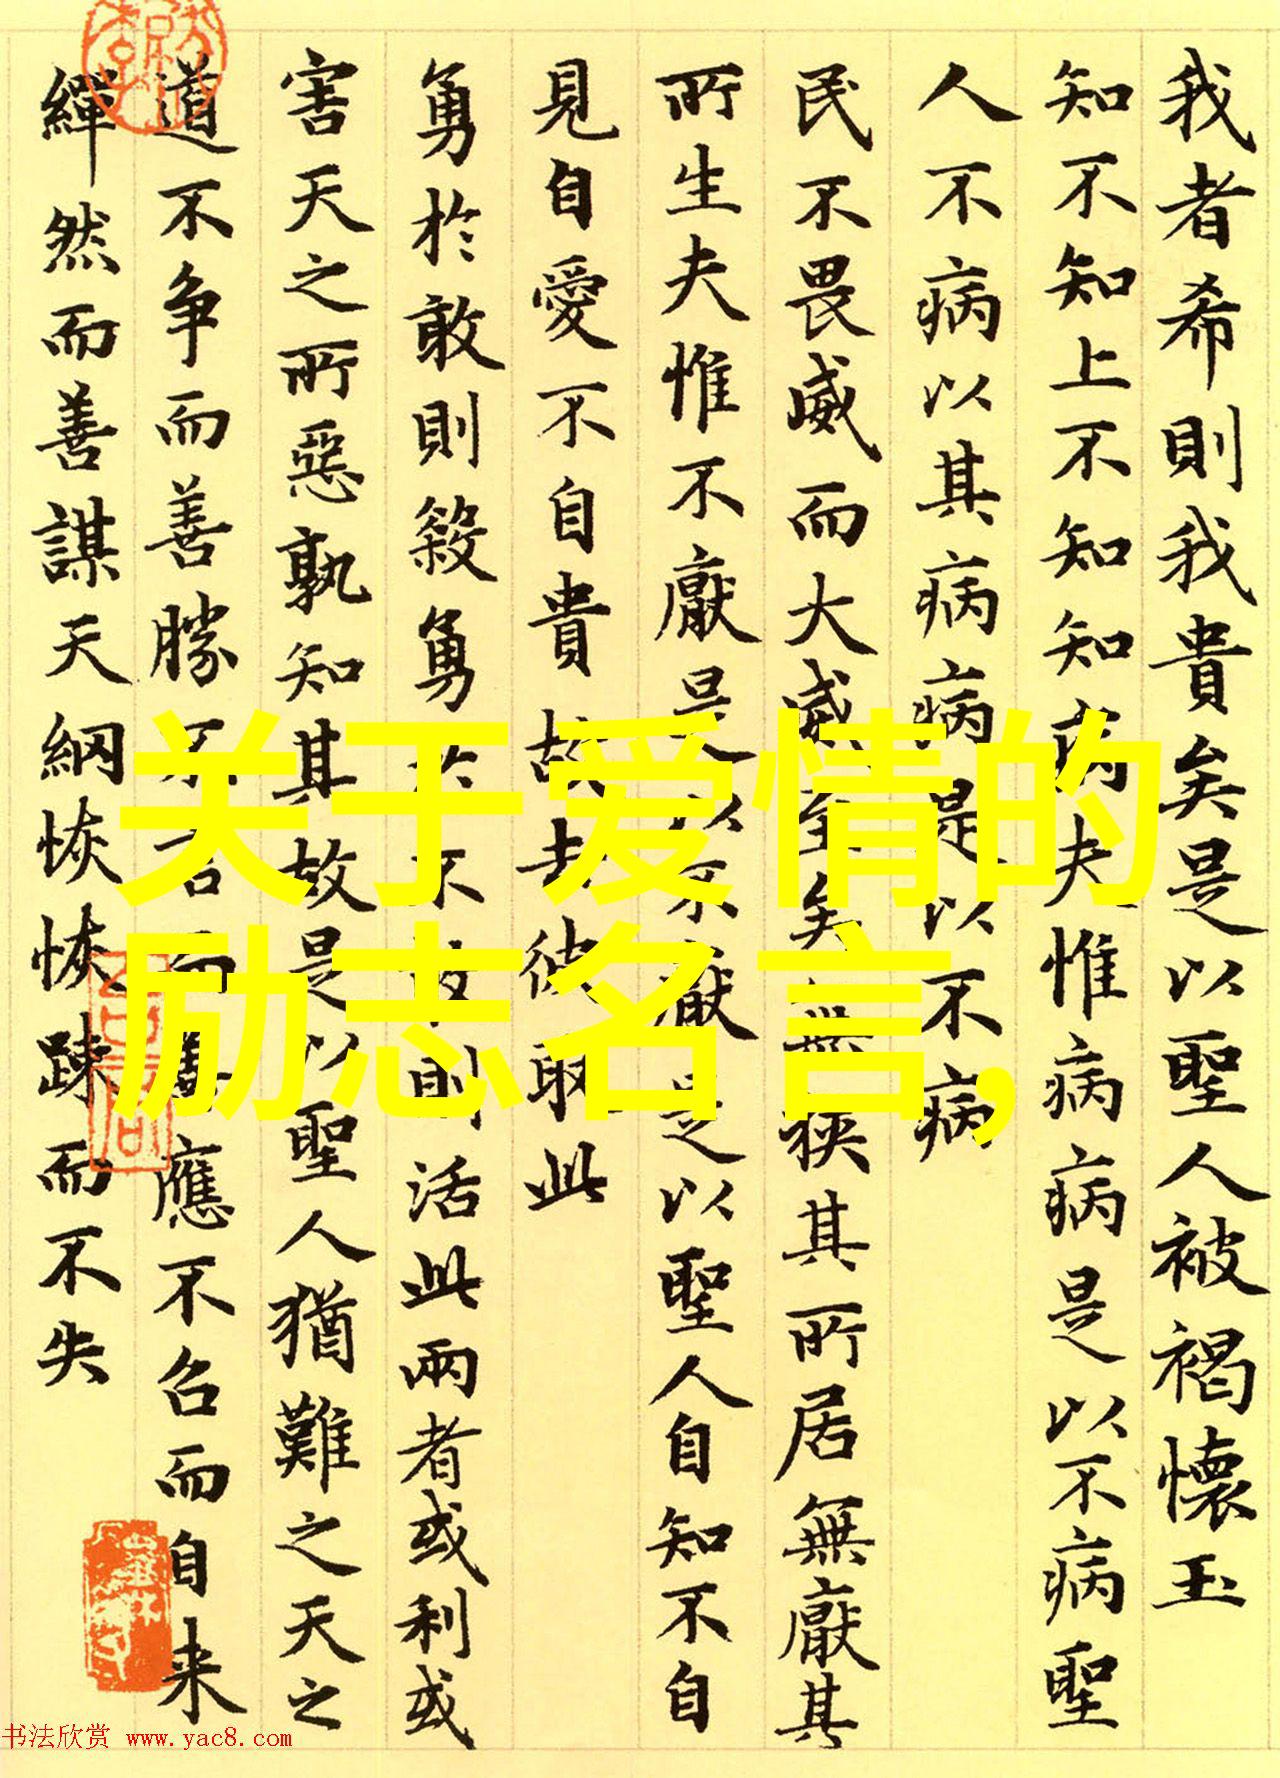 我者希則我貴矣是以聖人被褐懷玉
知不知上不知知病夫惟病病是以不病聖
人不病以其病病是以不病
民不畏威而大威至矣無狹其所居無厭其
所生夫惟不厭是以不厭是以聖人自知不自
見自愛不自貴故去彼取此
勇於敢則殺勇於不敢則活此兩者或利或
害天之所惡孰知其故是以聖人猶難之天之
道不争而善勝不言而善應不召而自来
繟然而善謀天綱恢恢踈而不失
关于爱情的
励志名言,
书法欣赏 www.yac8.com